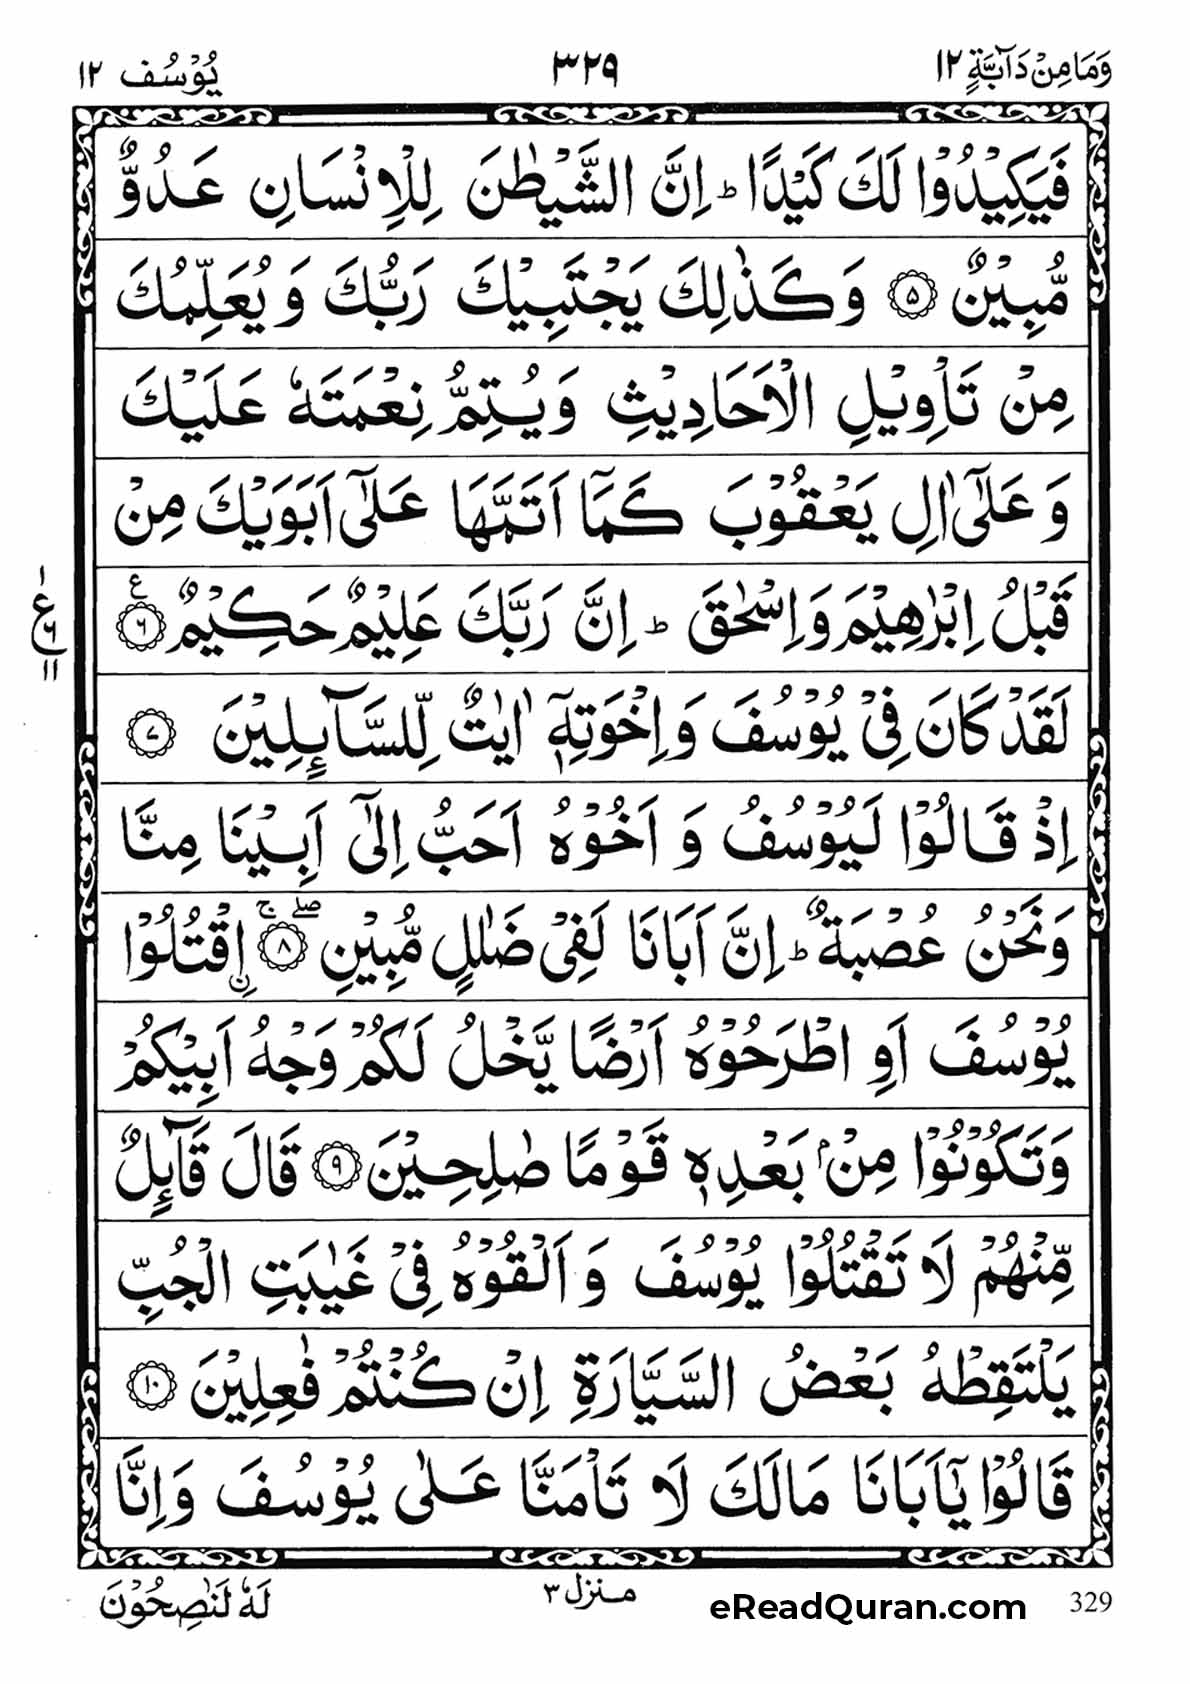 وَمَا مِنْ دَآبَّةٍ ١٢ ٣٢٩ يُوْسُف ١٢
فَيَكِيْدُوْا لَكَ كَيْدًا ؕ اِنَّ الشَّيْطٰنَ لِلْاِنْسَانِ عَدُوٌّ
مُّبِيْنٌ ۝۵ وَ كَذٰلِكَ يَجْتَبِيْكَ رَبُّكَ وَ يُعَلِّمُكَ
مِنْ تَاْوِيْلِ الْاَحَادِيْثِ وَ يُتِمُّ نِعْمَتَهٗ عَلَيْكَ
وَ عَلٰۤى اٰلِ يَعْقُوْبَ كَمَاۤ اَتَمَّهَا عَلٰۤى اَبَوَيْكَ مِنْ
قَبْلُ اِبْرٰهِيْمَ وَ اِسْحٰقَ ؕ اِنَّ رَبَّكَ عَلِيْمٌ حَكِيْمٌ ۝۶ ع
١ ع ۶ ١١
لَقَدْ كَانَ فِيْ يُوْسُفَ وَ اِخْوَتِهٖۤ اٰيٰتٌ لِّلسَّآىِٕلِيْنَ ۝۷
اِذْ قَالُوْا لَيُوْسُفُ وَ اَخُوْهُ اَحَبُّ اِلٰۤى اَبِيْنَا مِنَّا
وَ نَحْنُ عُصْبَةٌ ؕ اِنَّ اَبَانَا لَفِيْ ضَلٰلٍ مُّبِيْنِ ۝۸ ۖۚ اِ۟قْتُلُوْا
يُوْسُفَ اَوِ اطْرَحُوْهُ اَرْضًا يَّخْلُ لَكُمْ وَجْهُ اَبِيْكُمْ
وَ تَكُوْنُوْا مِنْۢ بَعْدِهٖ قَوْمًا صٰلِحِيْنَ ۝۹ قَالَ قَآىِٕلٌ
مِّنْهُمْ لَا تَقْتُلُوْا يُوْسُفَ وَ اَلْقُوْهُ فِيْ غَيٰبَتِ الْجُبِّ
يَلْتَقِطْهُ بَعْضُ السَّيَّارَةِ اِنْ كُنْتُمْ فٰعِلِيْنَ ۝۱۰
قَالُوْا يٰۤاَبَانَا مَالَكَ لَا تَاْمَنَّا عَلٰى يُوْسُفَ وَ اِنَّا
لَهٗ لَنٰصِحُوْنَ منزل ٣ eReadQuran.com 329